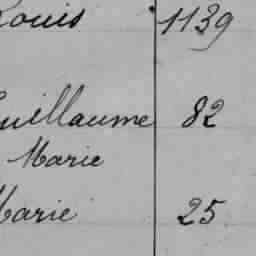 Louis 1139
Guillaume 82
Marie
Marie 25